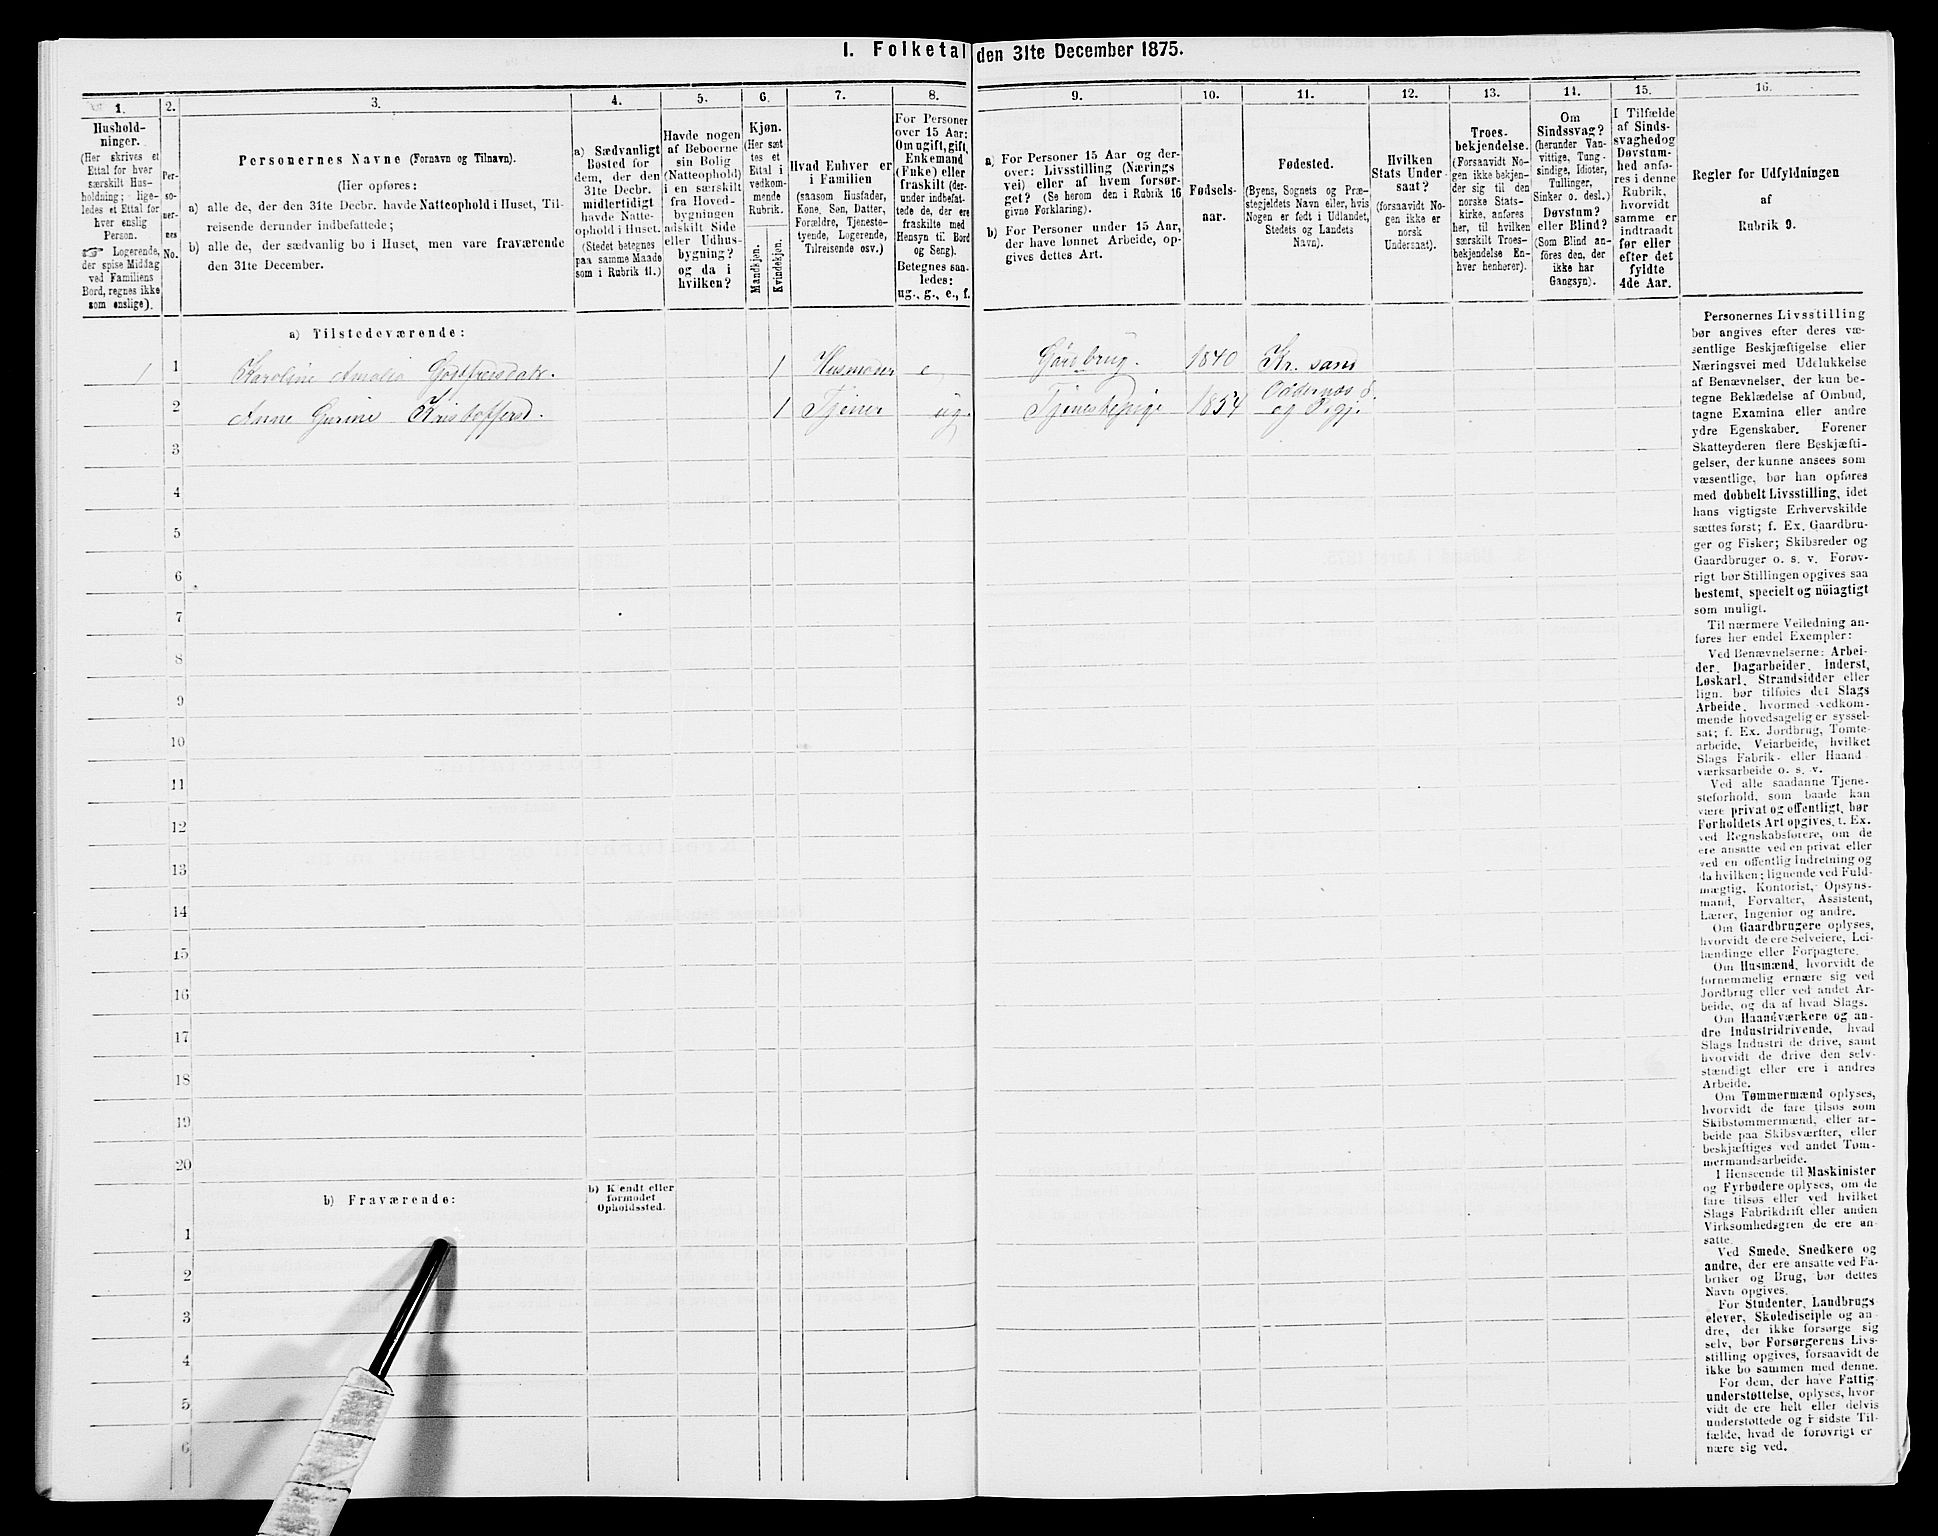 I. Folketal den 31te December 1875.
1.
Hushold-
ninger.
(Her skrives et
Ettal for hver
særskilt Hus-
holdning; lige-
ledes et Ettal for
hver enslig
Person.
☞ Logerende,
der spise Middag
ved Familiens
Bord, regnes ikke
som enslige).
2.
Per-
so-
ner-
nes
No.
3.
Personernes Navne (Fornavn og Tilnavn).
(Her opføres:
a) alle de, der den 31te Decbr. havde Natteophold i Huset, Til-
reisende derunder indbefattede;
b) alle de, der sædvanlig bo i Huset, men vare fraværende
den 31te December.
4.
a) Sædvanligt
Bosted for
dem, der den
31te Decbr.
midlertidigt
havde Natte-
ophold i Huset.
(Stedet betegnes
paa samme Maade
som i Rubrik 11.)
5.
Havde nogen
af Beboerne
sin Bolig
(Natteophold)
i en særskilt
fra Hoved-
bygningen
adskilt Side
eller Udhus-
bygning?
og da i
hvilken?
6.
Kjøn.
(Her sæt
tes et
Ettal i
vedkom-
mende
Rubrik.
Mandkjøn.
Kvindekjøn.
7.
Hvad Enhver er
i Familien
(saasom Husfader,
Kone, Søn, Datter,
Forældre, Tjeneste-
tyende, Logerende,
Tilreisende osv.)
8.
For Personer
over 15 Aar;
Om ugift, gift,
Enkemand
(Enke) eller
fraskilt (der-
under indbefat-
tede de, der ere
fraskilte med
Hensyn til Bord
og Seng).
Betegnes saa-
ledes:
ug., g., e., f.
9.
a) For Personer 15 Aar og der-
over: Livsstilling (Nærings
vei) eller af hvem forsør-
get? (Se herom den i Rubrik 16
givne Forklaring).
b) For Personer under 15 Aar,
der have lønnet Arbeide, op-
gives dettes Art.
10.
Fødsels-
aar.
11.
Fødested.
(Byens, Sognets og Præ-
stegjeldets Navn eller, hvis
Nogen er født i Udlandet,
Stedets og Landets
Navn).
12.
Hvilken
Stats Under-
saat?
(forsaavidt No-
gen ikke er
norsk
Undersaat).
13.
Troes-
bekjendelse.
(Forsaavidt No-
gen ikke bekjen-
der sig til den
norske Stats-
kirke, anføres
her, til hvilken
særskilt Troes-
bekjendelse En-
hver henhører).
14.
Om
Sindssvag?
(herunder Van-
vittige, Tung-
sindige, Idioter,
Tullinger,
Sinker o. desl.)
Døvstum?
eller Blind?
(Som Blind an-
føres den, der
ikke har
Gangsyn).
15.
I Tilfælde
af Sinds-
svaghed og
Døvstum-
hed anfø-
res i denne
Rubrik,
hvorvidt
samme er
indtraadt
før eller
efter det
fyldte
4de Aar.
16.
Regler for Udfyldningen
af
Rubrik 9.
a) Tilstedeværende:
1 1 Karoline Amalia Gottfredsdatr. 1 Husmoder e Gårdbrug. 1840 Kr.sand
2 Anne Gurine Kristoffersd. 1 Tjener ug. Tjenestepige 1854 Oddernæs S.
og Prgj.
3
4
5
6
7
8
9
10
11
12
13
14
15
16
17
18
19
20
b) Fraværende:
b) Kjendt eller
formodet
Opholdssted.
1
2
3
4
5
6
Personernes Livsstilling
bør angives efter deres væ-
sentlige Beskjæftigelse eller
Næringsvei med Udelukkelse
af Benævnelser, der kun be-
tegne Beklædelse af Ombud,
tagne Examina eller andre
ydre Egenskaber. Forener
Skatteyderen flere Beskjæfti-
gelser, der kunne ansees som
væsentlige, bør han opføres
med dobbelt Livsstilling, idet
hans vigtigste Erhvervskilde
sættes først; f. Ex. Gaardbru-
ger og Fisker; Skibsreder og
Gaardbruger o. s. v. Forøv-
rigt bør Stillingen opgives saa
bestemt, specielt og nöiagtigt
som muligt.
Til nærmere Veiledning an-
føres her endel Exempler:
Ved Benævnelserne: Arbei-
der, Dagarbeider, Inderst,
Løskarl, Strandsidder eller
lign. bør tilføies det Slags
Arbeide, hvormed vedkom-
mende hovedsagelig er syssel-
sat; f. Ex. Jordbrug, Tomte-
arbeide, Veiarbeide, hvilket
Slags Fabrik- eller Haand
værksarbeide o. s. v.
Ved alle saadanne Tjene-
steforhold, som baade kan
være privat og offentligt, bør
Forholdets Art opgives, t. Ex.
ved Regnskabsførere, om de
ere ansatte ved en privat eller
ved en offentlig Indretning og
da hvilken; lignende ved Fuld-
mægtig, Kontorist, Opsyns-
mand, Forvalter, Assistent,
Lærer, Ingeniør og andre.
Om Gaardbrugere oplyses,
hvorvidt de ere Selveiere, Lei-
lændinge eller Forpagtere.
Om Husmænd, hvorvidt de
fornemmelig ernære sig ved
Jordbrug eller ved andet Ar-
beide, og da af hvad Slags.
Om Haandværkere og an-
dre Industridrivende, hvad
Slags Industri de drive, samt
hvorvidt de drive den selv-
stændigt eller ere i andres
Arbeide.
Om Tømmermænd oplyses,
hvorvidt de fare tilsøs som
Skibstømmermænd, eller ar-
beide paa Skibsværfter, eller
beskjæftiges ved andet Tøm-
mermandsarbeide.
I Henseende til Maskinister
og Fyrbødere oplyses, om de
fare tilsøs eller ved hvilket
Slags Fabrikdrift eller anden
Virksomhedsgren de ere an-
satte.
Ved Smede, Snedkere og
andre, der ere ansatte ved Fa-
briker og Brug, bør dettes
Navn opgives.
For Studenter, Landbrugs
elever, Skoledisciple og an-
dre, der ikke forsørge sig
selv, bør Forsørgerens Livs-
stilling opgives, forsaavidt de
ikke bo sammen med denne.
For dem, der have Fattig
understøttelse, oplyses, hvor-
vidt de ere helt eller delvis
understøttede og i sidste Til-
fælde, hvad de forøvrigt er
nære sig ved.